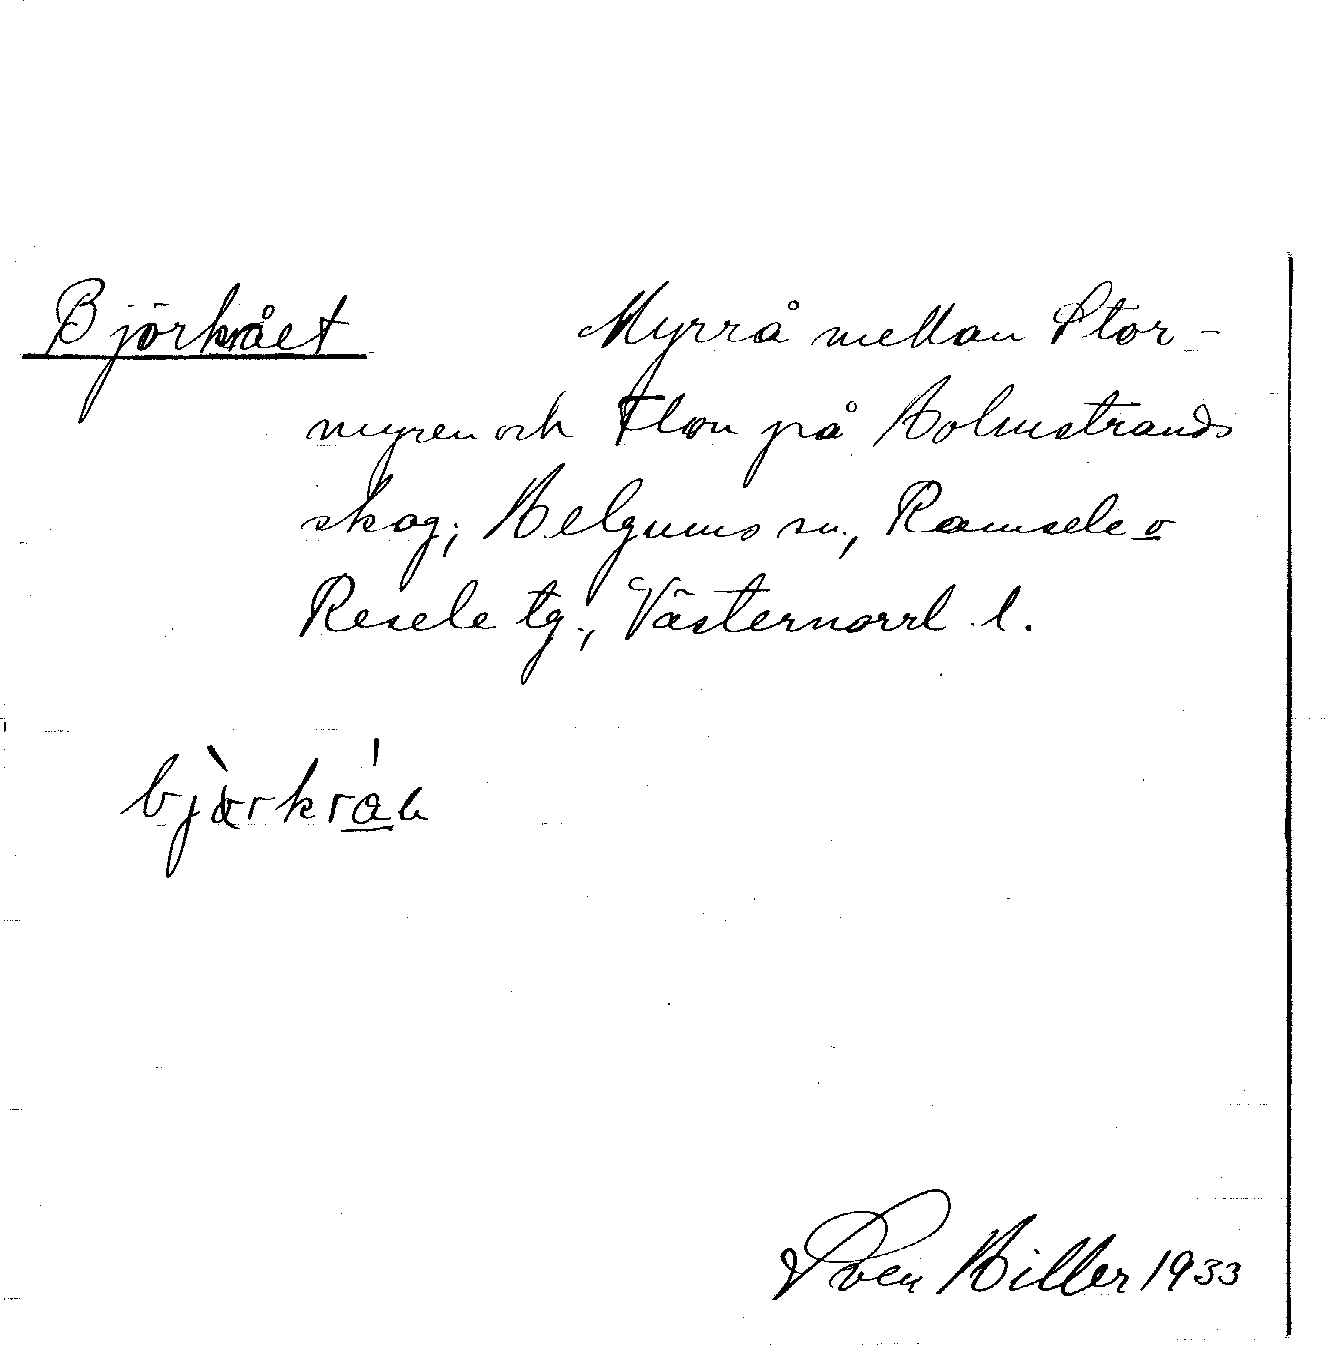 Björkrået Myrrå mellan Stor-
myren och Flon på Holmstrands
skog; Helgums sn., Ramsele o
Resele tg., Västernorrl. l.
bjàrkráɩ
Sven Hiller 1933